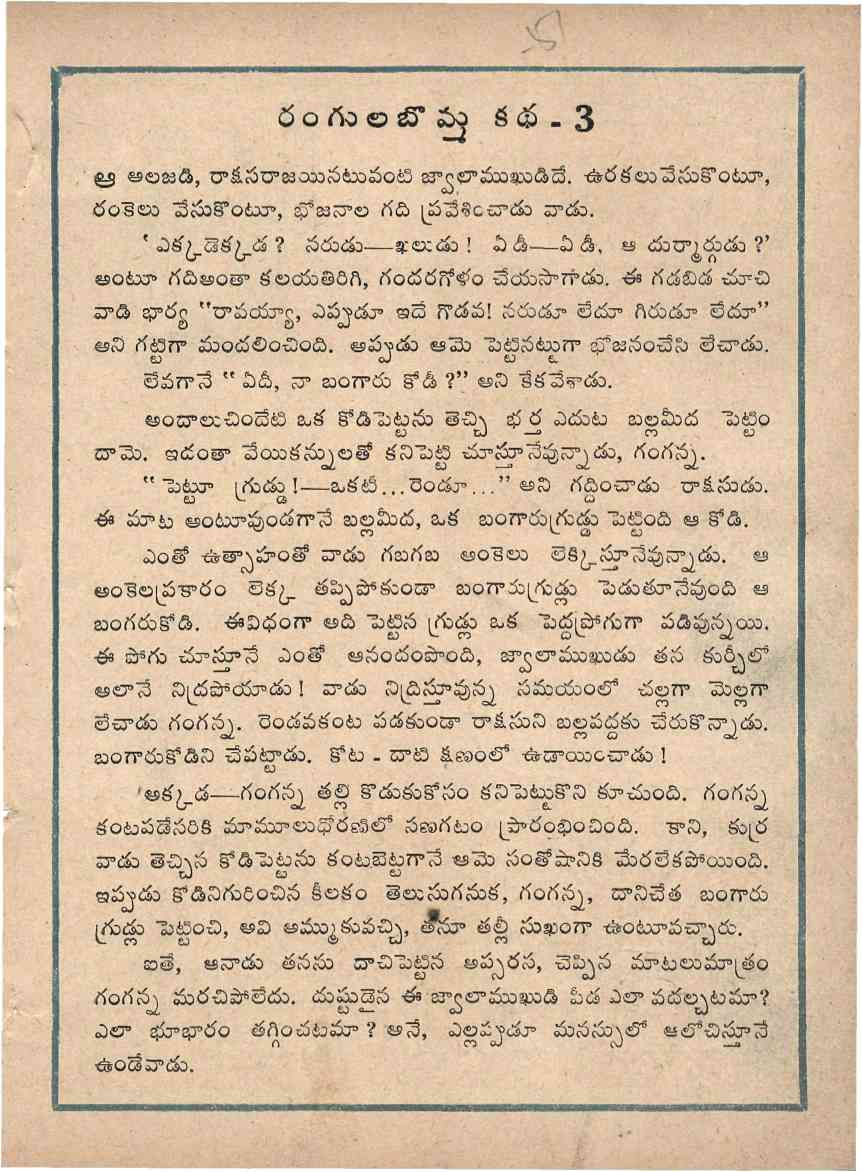 రంగులబొమ్మ కథ - 3
ఆ అలజడి, రాక్షసరాజయినటువంటి జ్వాలాముఖుడిదే. ఉరకలు వేసుకొంటూ,
రంకెలు వేసుకొంటూ, భోజనాల గది ప్రవేశించాడు వాడు.
‘ఎక్కడెక్కడ ? నరుడు—ఖలుడు ! ఏడీ—ఏడీ, ఆ దుర్మార్గుడు ?’
అంటూ గదిఅంతా కలయతిరిగి, గందరగోళం చేయసాగాడు. ఈ గడబిడ చూచి
వాడి భార్య “రావయ్యా, ఎప్పుడూ ఇదే గొడవ! నరుడూ లేదూ గిరుడూ లేదూ”
అని గట్టిగా మందలించింది. అప్పుడు ఆమె పెట్టినట్టుగా భోజనంచేసి లేచాడు.
లేవగానే “ ఏదీ, నా బంగారు కోడీ ?” అని కేకవేశాడు.
అందాలుచిందేటి ఒక కోడిపెట్టను తెచ్చి భర్త ఎదుట బల్లమీద పెట్టిం
దామె. ఇదంతా వేయికన్నులతో కనిపెట్టి చూస్తూనేవున్నాడు, గంగన్న.
“ పెట్టూ గ్రుడ్డు !—ఒకటీ...రెండూ...” అని గద్దించాడు రాక్షసుడు.
ఈ మాట అంటూవుండగానే బల్లమీద, ఒక బంగారుగ్రుడ్డు పెట్టింది ఆ కోడి.
ఎంతో ఉత్సాహంతో వాడు గబగబ అంకెలు లెక్కిస్తూనేవున్నాడు. ఆ
అంకెలప్రకారం లెక్క తప్పిపోకుండా బంగారుగ్రుడ్లు పెడుతూనేవుంది ఆ
బంగరుకోడి. ఈవిధంగా అది పెట్టిన గ్రుడ్లు ఒక పెద్దప్రోగుగా పడివున్నయి.
ఈ పోగు చూస్తూనే ఎంతో ఆనందంపొంది, జ్వాలాముఖుడు తన కుర్చీలో
అలానే నిద్రపోయాడు ! వాడు నిద్రిస్తూవున్న సమయంలో చల్లగా మెల్లగా
లేచాడు గంగన్న. రెండవకంట పడకుండా రాక్షసుని బల్లవద్దకు చేరుకొన్నాడు.
బంగారుకోడిని చేపట్టాడు. కోట - దాటి క్షణంలో ఉడాయించాడు !
అక్కడ—గంగన్న తల్లి కొడుకుకోసం కనిపెట్టుకొని కూచుంది. గంగన్న
కంటపడేసరికి మామూలుధోరణిలో సణగటం ప్రారంభించింది. కాని, కుర్ర
వాడు తెచ్చిన కోడిపెట్టను కంటబెట్టగానే ఆమె సంతోషానికి మేరలేకపోయింది.
ఇప్పుడు కోడినిగురించిన కీలకం తెలుసుగనుక, గంగన్న, దానిచేత బంగారు
గ్రుడ్లు పెట్టించి, అవి అమ్ముకువచ్చి, తనూ తల్లీ సుఖంగా ఉంటూవచ్చారు.
ఐతే, ఆనాడు తనను దాచిపెట్టిన అప్సరస, చెప్పిన మాటలుమాత్రం
గంగన్న మరచిపోలేదు. దుష్టుడైన ఈ జ్వాలాముఖుడి పీడ ఎలా వదల్చటమా?
ఎలా భూభారం తగ్గించటమా ? అనే, ఎల్లప్పుడూ మనస్సులో ఆలోచిస్తూనే
ఉండేవాడు.